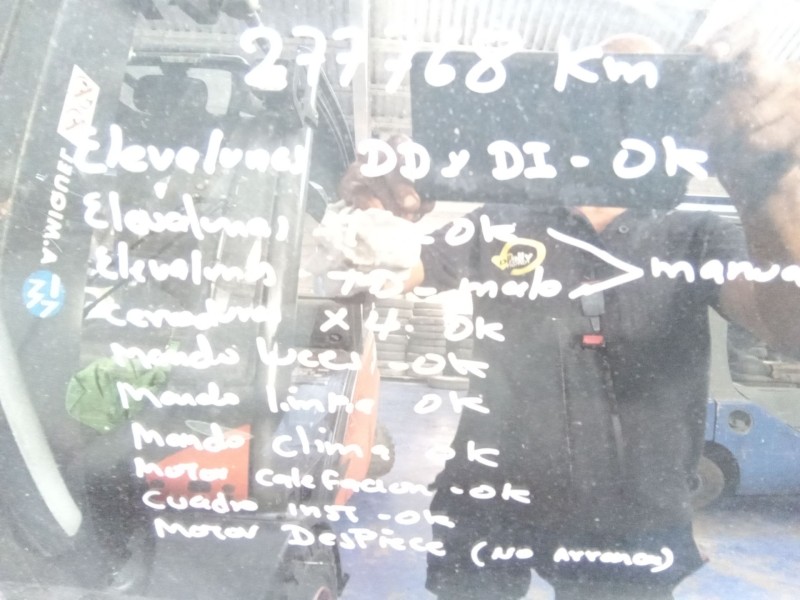 277768 Km
Elevalunas DD y DI - OK
Elevalunas - OK
Elevalunas TD - malo
manua
Cerradura x 4. OK
Mando luces - OK
Mando limpia OK
Mando clima OK
Motor calefacion - OK
Cuadro inst - OK
Motor DesPiece (No Arranca)